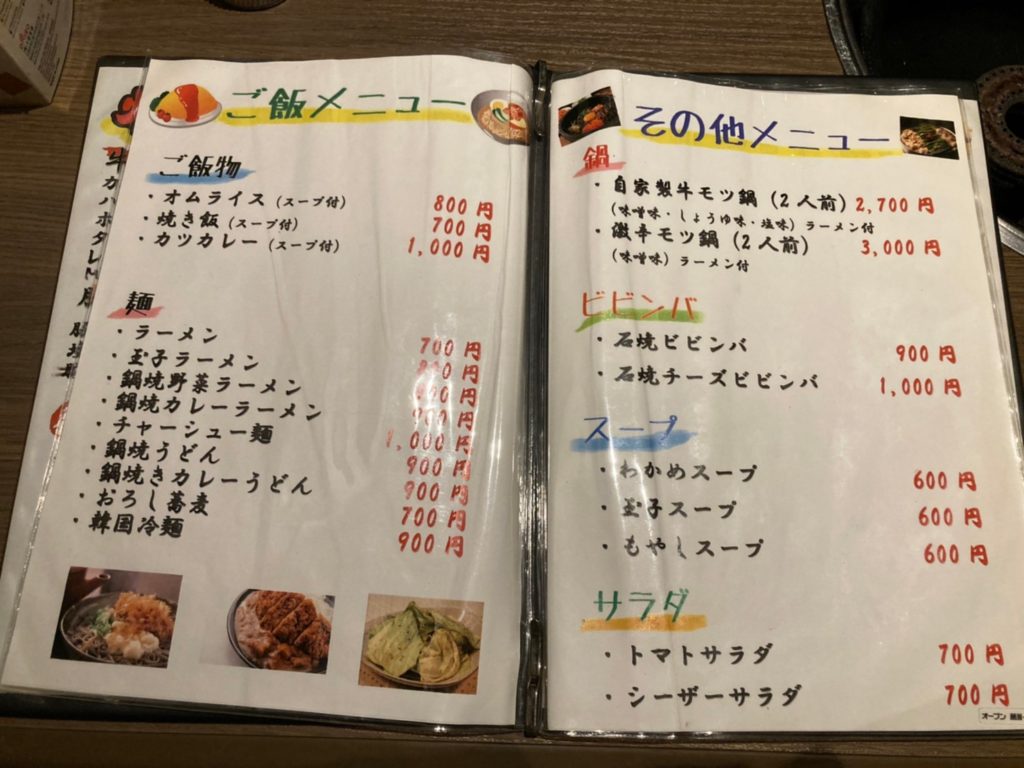 ご飯メニュー
ご飯物
・オムライス（スープ付） 800 円
・焼き飯（スープ付） 700 円
・カツカレー（スープ付） 1,000 円
麺
・ラーメン 700 円
・玉子ラーメン 800 円
・鍋焼野菜ラーメン 円
・鍋焼カレーラーメン 900 円
・チャーシュー麺 1,000 円
・鍋焼うどん 900 円
・鍋焼きカレーうどん 900 円
・おろし蕎麦 700 円
・韓国冷麺 900 円
その他メニュー
鍋
・自家製牛モツ鍋（2人前）2,700 円
（味噌味・しょうゆ味・塩味）ラーメン付
・激辛モツ鍋（2人前） 3,000 円
（味噌味）ラーメン付
ビビンバ
・石焼ビビンバ 900 円
・石焼チーズビビンバ 1,000 円
スープ
・わかめスープ 600 円
・玉子スープ 600 円
・もやしスープ 600 円
サラダ
・トマトサラダ 700 円
・シーザーサラダ 700 円
オープン